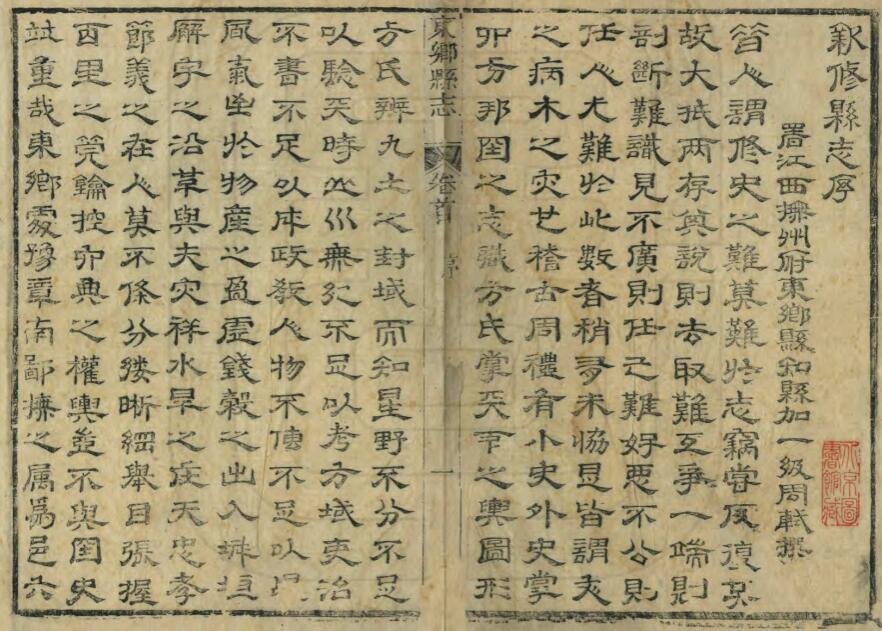 新修縣志序
署江西撫州府東鄉縣知縣加一級周軾撰
昔人謂修史之難莫難於志竊嘗反復其
故大抵兩存其說則去取難互爭一端則
剖斷難識見不廣則任己難好惡不公則
任人尤難於此數者稍有未協是皆謂志
之病木之災也稽古周禮有小史外史掌
四方邦國之志職方氏掌天下之輿圖形
東鄉縣志
卷首
序
一
方氏辨九土之封域而知星野不分不足
以驗天時山川無紀不足以考方域吏治
不書不足以府政教人物不傳不足以
風氣至於物產之盈虛錢穀之出入城垣
廨宇之沿革與夫災祥水旱之在天忠孝
節義之在人莫不條分縷晰綱舉目張握
百里之筦鑰控四興之權輿並不與國史
竝重哉東鄉處豫章南鄙撫之屬為邑六